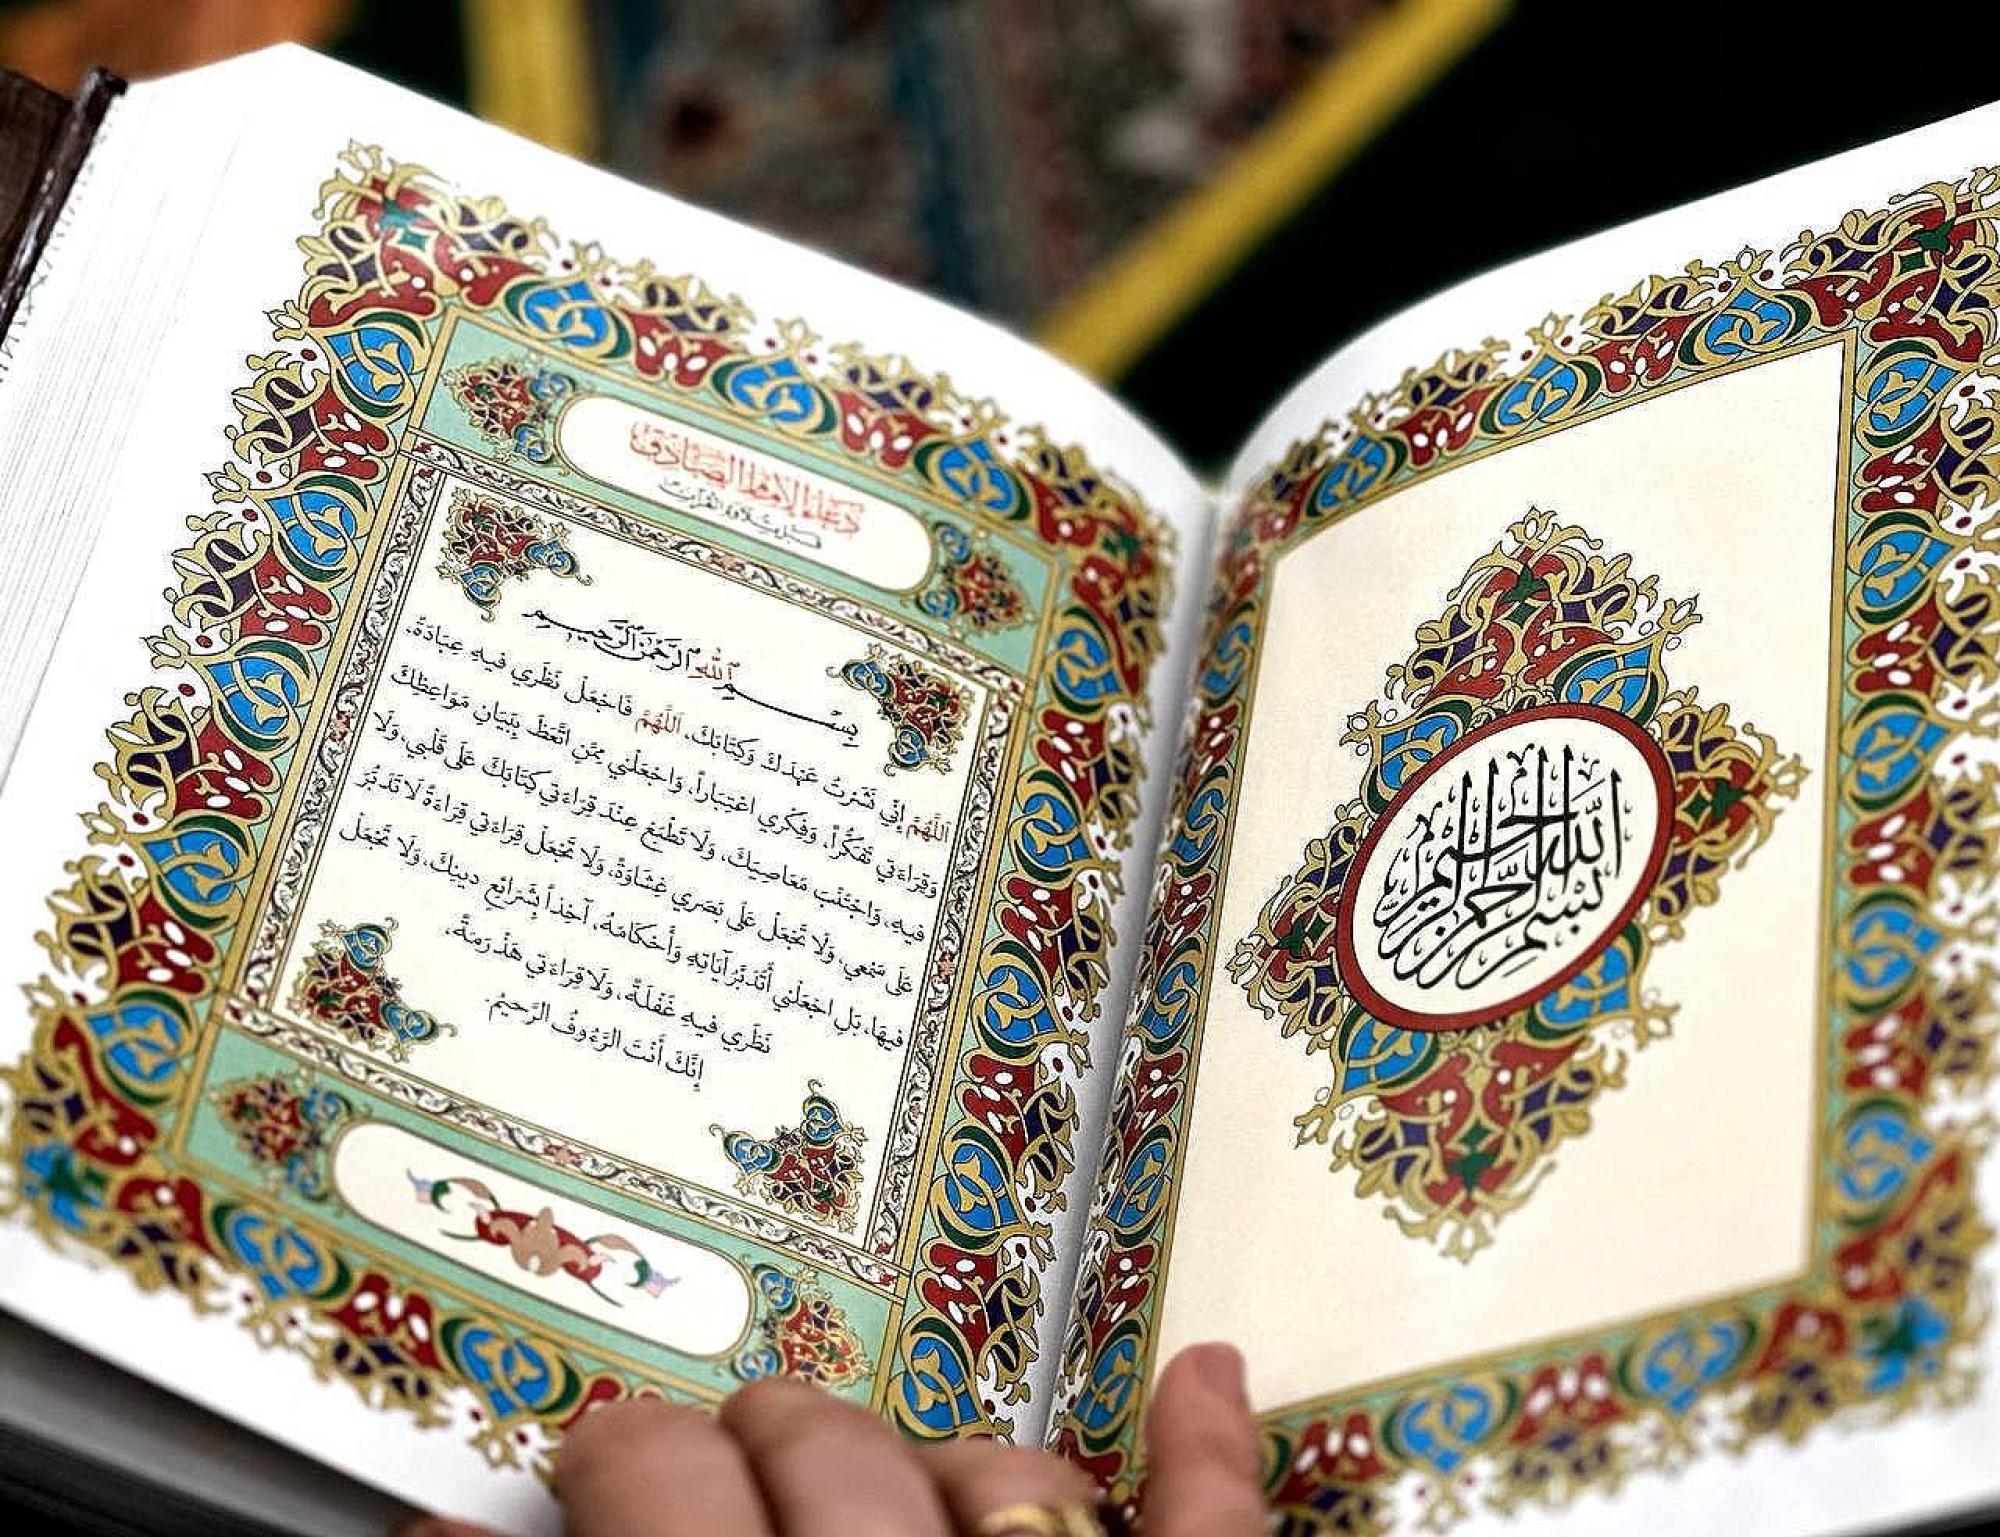 بِسْمِ اللَّهِ الرَّحْمَنِ الرَّحِيمِ
دُعَاءُ الإمَامِ الصَّادِقِ
قَبْلَ تِلَاوَةِ القُرْآنِ
بِسْمِ اللهِ الرَّحْمَنِ الرَّحِيمِ
اللَّهُمَّ إِنِّي نَشَرْتُ عَهْدَكَ وَكِتَابَكَ، اللَّهُمَّ فَاجْعَلْ نَظَرِي فِيهِ عِبَادَةً،
وَقِرَاءَتِي تَفَكُّراً، وَفِكْرِي اعْتِبَاراً، وَاجْعَلْنِي مِمَّنِ اتَّعَظَ بِبَيَانِ مَوَاعِظِكَ
فِيهِ، وَاجْتَنَبَ مَعَاصِيَكَ، وَلَا تَطْبَعْ عِنْدَ قِرَاءَتِي كِتَابَكَ عَلَى قَلْبِي، وَلَا
عَلَى سَمْعِي، وَلَا تَجْعَلْ عَلَى بَصَرِي غِشَاوَةً، وَلَا تَجْعَلْ قِرَاءَتِي قِرَاءَةً لَا تَدَبُّرَ
فِيهَا، بَلِ اجْعَلْنِي أَتَدَبَّرُ آيَاتِهِ وَأَحْكَامَهُ، آخِذاً بِشَرَائِعِ دِينِكَ، وَلَا تَجْعَلْ
نَظَرِي فِيهِ غَفْلَةً، وَلَا قِرَاءَتِي هَذْرَمَةً،
إِنَّكَ أَنْتَ الرَّءُوفُ الرَّحِيمُ.